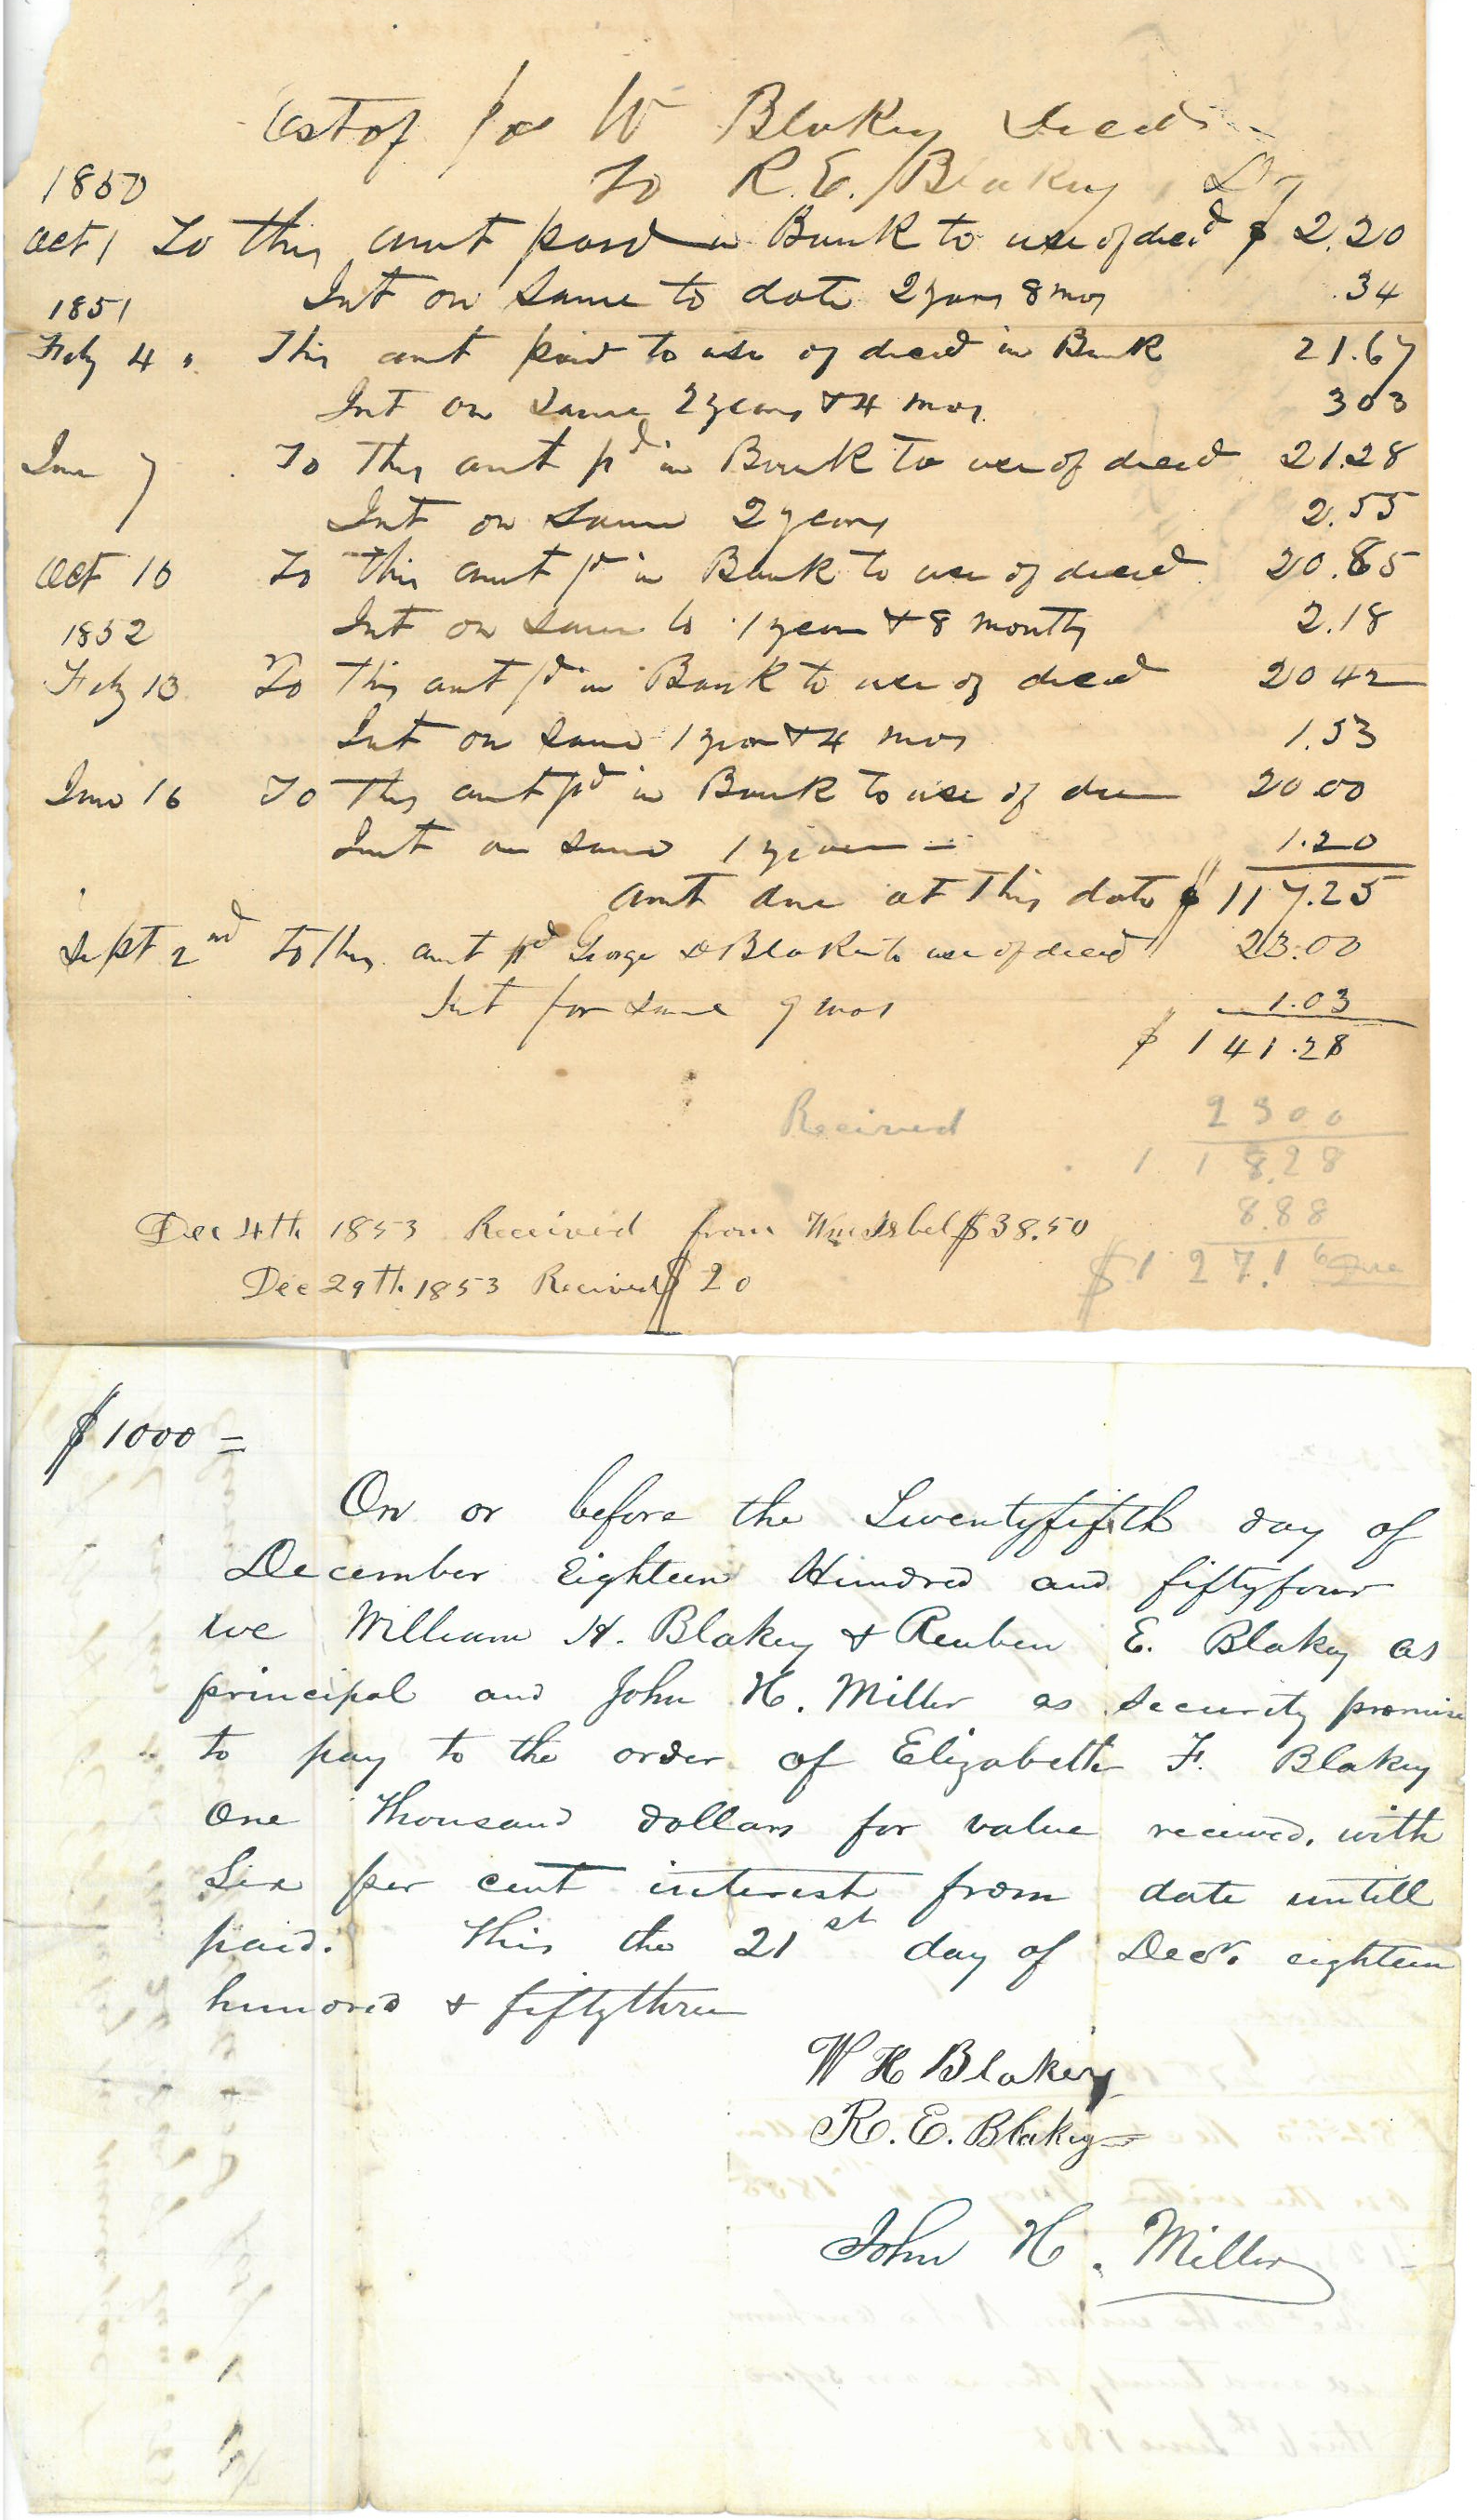 Est of Jas W Blakey Decd
To R.E. Blakey Dr
1850
Oct 1 To this amt paid in Bank to use of decd $ 2.20
Int on same to date 2 years 8 mos .34
1851
Feby 4 " This amt paid to use of decd in Bank 21.67
Int on same 2 years & 4 mos. 303
June 7 To this amt pd in Bank to use of decd 21.28
Int on same 2 years 2.55
Oct 10 To this amt pd in Bank to use of decd 20.85
Int on same to 1 year & 8 months 2.18
1852
Feby 13 To this amt pd in Bank to use of decd 20 42
Int on same 1 year & 4 mos 1.53
June 16 To this amt pd in Bank to use of dec 20.00
Int on same 1 year = 1.20
amt due at this date $ 117.25
Sept 2nd To this amt pd George D Blakey to use of decd 23.00
Int for same 9 mos 1.03
$ 141.28
Received 2300
118.28
8.88
Dec 4th 1853 Received from Wm Isbel $38.50
$127.16 Due
Dec 29th 1853 Received $20
$1000=
On or before the Twentyfifth day of
December Eighteen Hundred and fiftyfour
we William H. Blakey & Reuben E. Blakey as
principal and John H. Miller as security promise
to pay to the order of Elizabeth F. Blakey
One Thousand dollars for value received, with
Six per cent interest from date untill
paid. This the 21st day of Decr. eighteen
hundred & fiftythree
W H Blakey
R. E. Blakey
John H. Miller